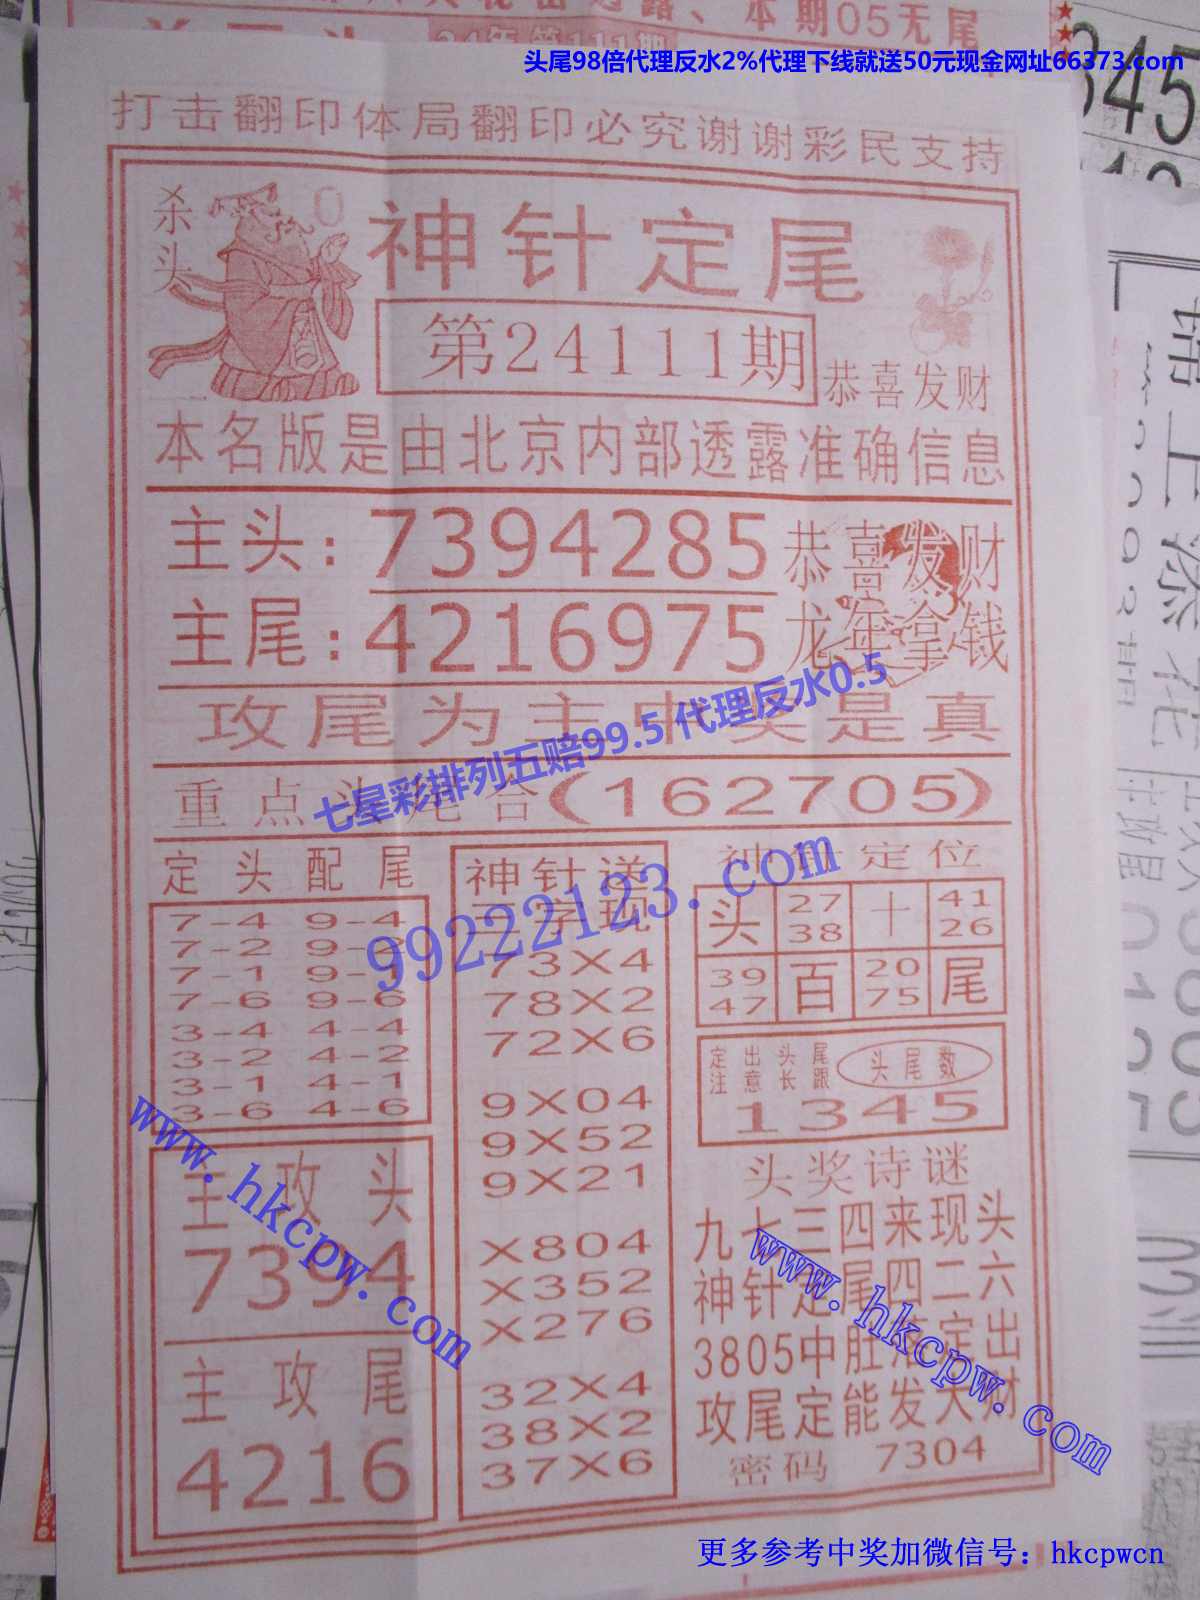 本期05无尾
24年第111期
头尾98倍代理反水2%代理下线就送50元现金网址66373.com
打击翻印体局翻印必究谢谢彩民支持
杀头
0
神针定尾
第24111期
恭喜发财
本名版是由北京内部透露准确信息
主头:7394285
恭喜发财
主尾:4216975
龙年拿钱
攻尾为主中奖是真
七星彩排列五赔99.5 代理反水0.5
重点头尾合(162705)
99222123.com
定头配尾
7-4 9-4
7-2 9-2
7-1 9-1
7-6 9-6
3-4 4-4
3-2 4-2
3-1 4-1
3-6 4-6
主攻头
7394
主攻尾
4216
神针送
三字现
73X4
78X2
72X6
9X04
9X52
9X21
X804
X352
X276
32X4
38X2
37X6
神针定位
头 27 38 十 41 26
39 47 百 20 75 尾
定出头尾
注意长跟
头尾数
1345
头奖诗谜
九七三四来现头
神针定尾四二六
3805中肚落定出
攻尾定能发大财
密码 7304
www.hkcpw.com
www.hkcpw.com
更多参考中奖加微信号：hkcpwcn